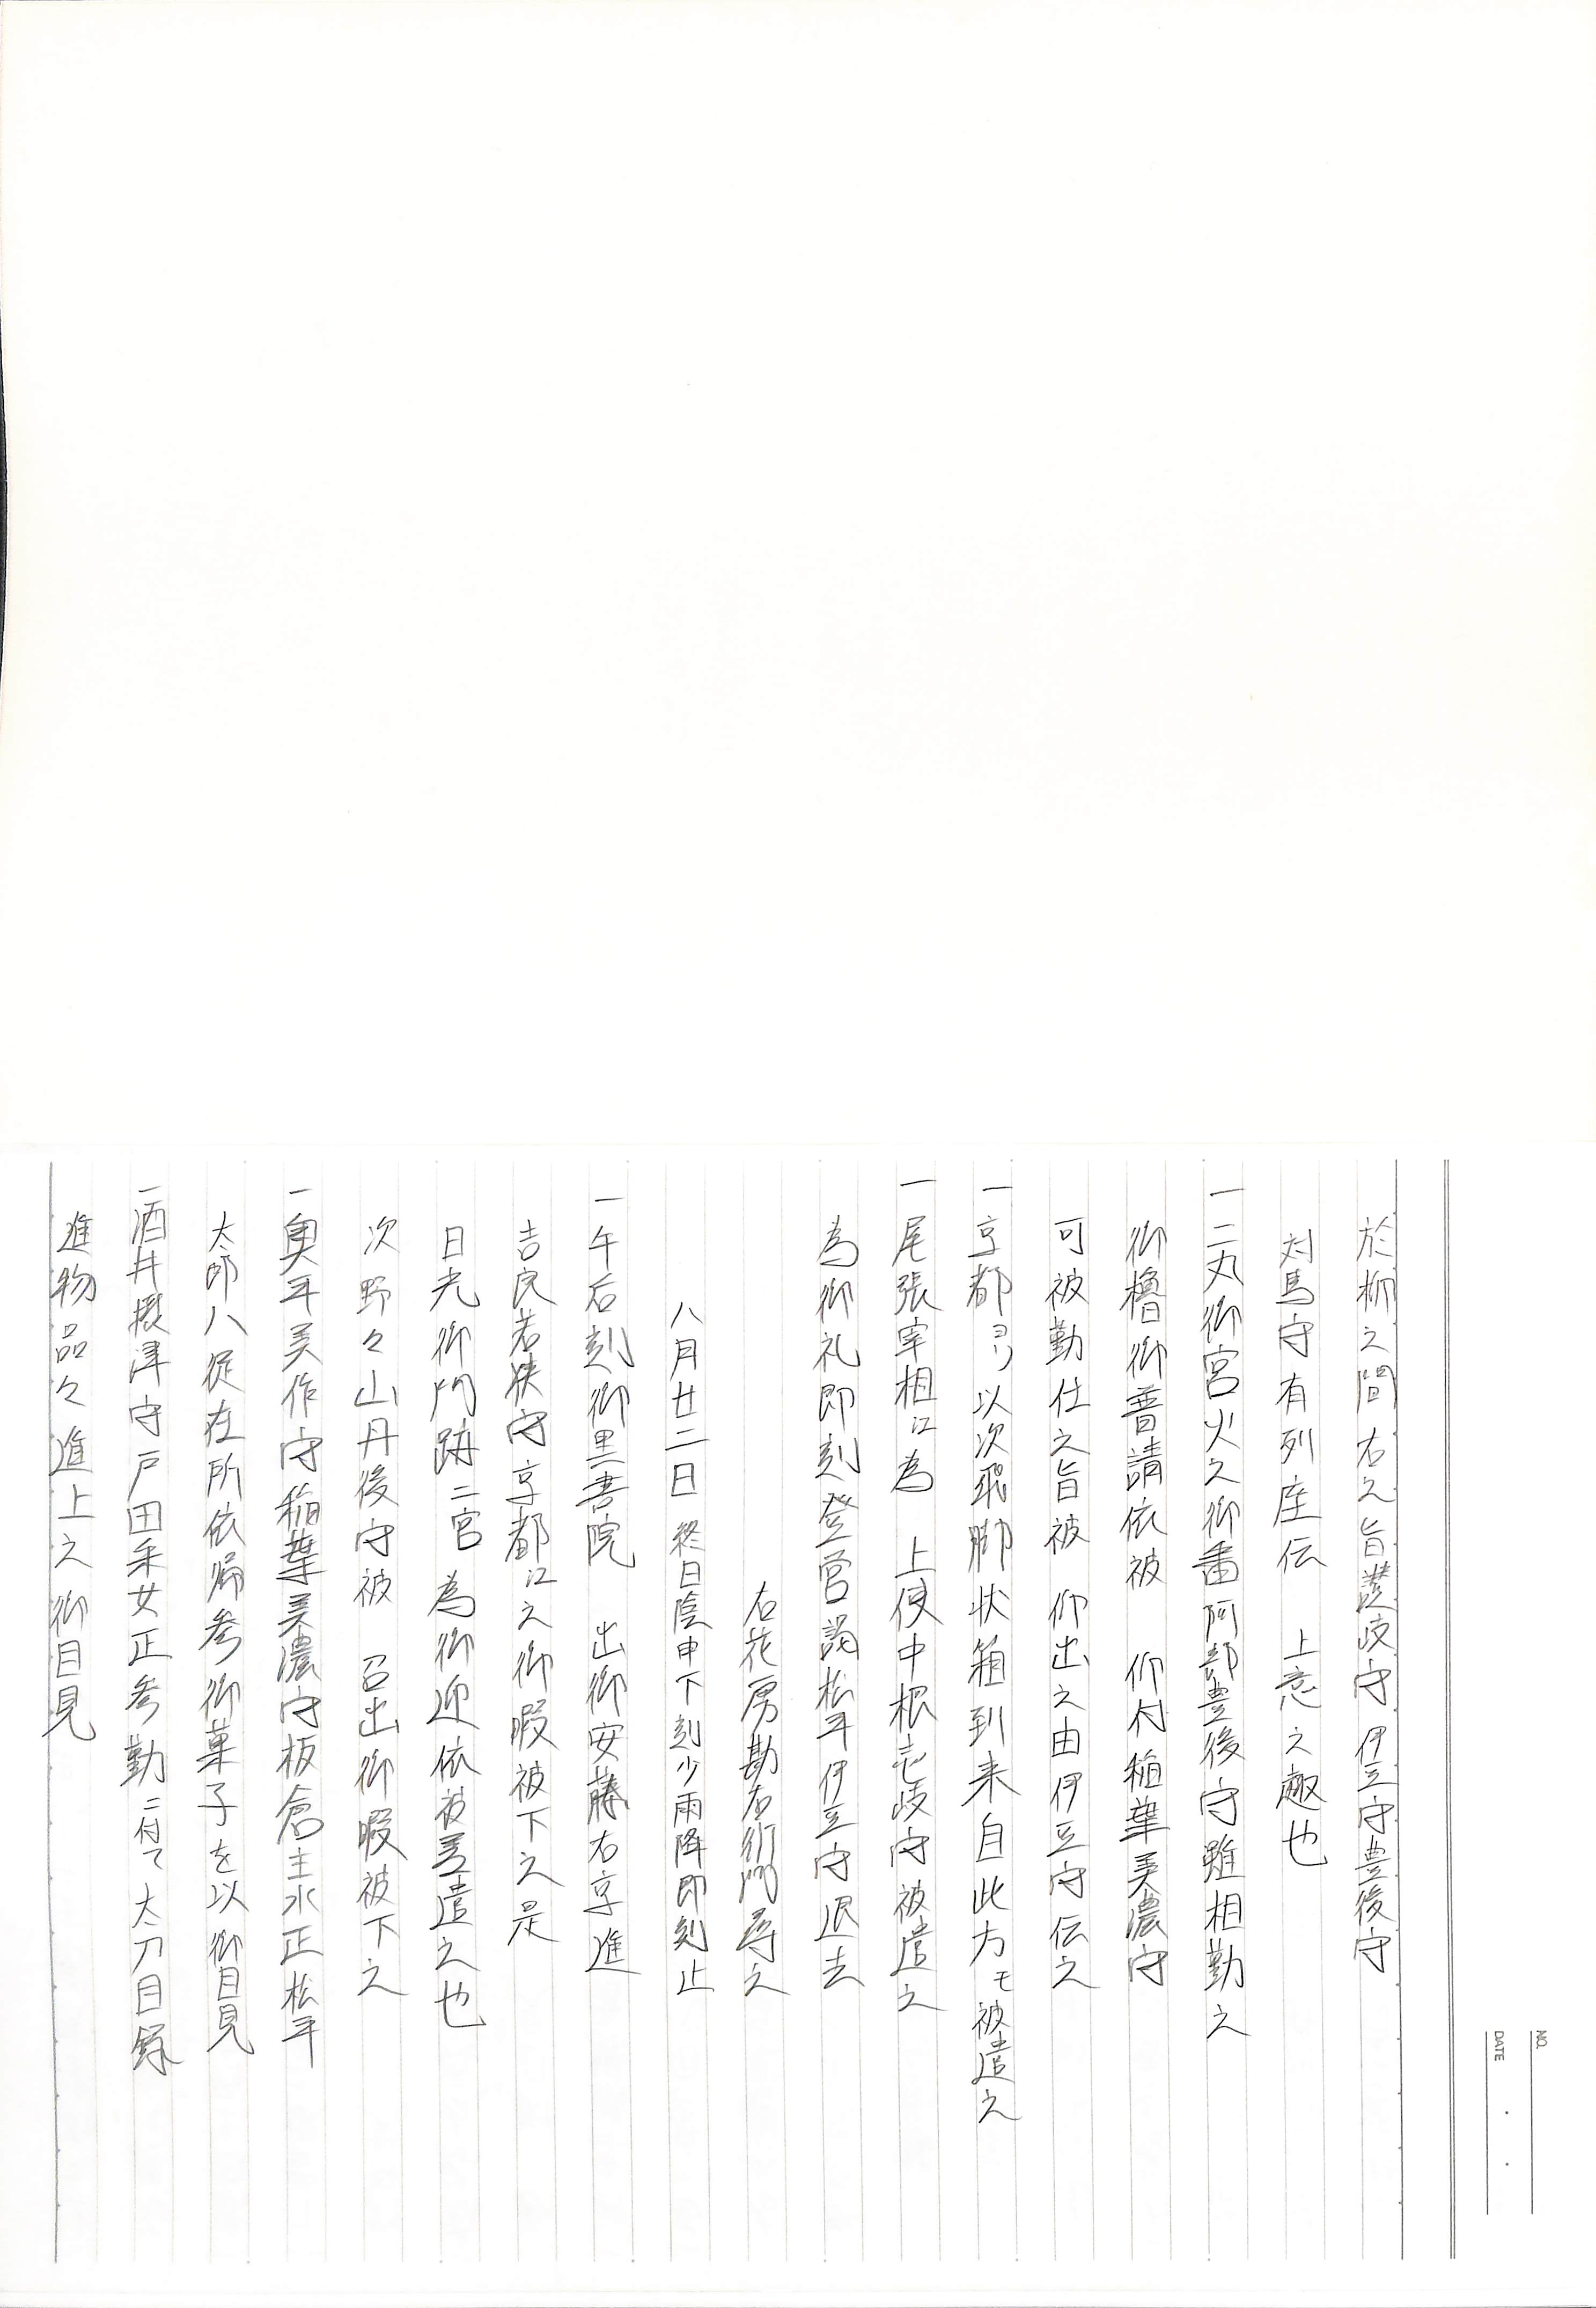 NO.
DATE ・ ・
於柳之間右之旨讃岐守伊豆守豊後守
対馬守有列座伝 上意之趣也
一二丸御宮火之御番阿部豊後守雖相勤之
御櫓御普請依被 仰付稲葉美濃守
可被勤仕之旨被 仰出之由伊豆守伝之
一京都ヨリ以次飛脚状箱到来自此方モ被遣之
一尾張宰相江為 上使中根壱岐守被遣之
為御礼即刻登営謁松平伊豆守退去
右花房勘右衛門尋之
八月廿二日 終日陰申下刻少雨降即刻止
一午后刻御黒書院 出御安藤右京進
吉良若狭守京都江之御暇被下之是
日光御門跡二宮為御迎依被差遣之也
次野々山丹後守被 召出御暇被下之
一奥平美作守稲葉美濃守板倉主水正松平
太郎八従在所依帰参御菓子を以御目見
一酒井摂津守戸田采女正参勤ニ付て太刀目録
進物品々進上之御目見